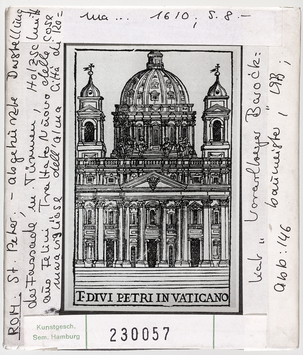 ma... 1610; S. 8.-
ROM. St. Peter, - abgekürzte Darstellung
der Fassade m. Türmen, Holzschnitt
aus Felini, Trattato Nuovo delle Cose
maravigliose dell'alma Città di Ro-
T. DIVI PETRI IN VATICANO
Kat. "Vorarlberger Barock-
baumeister",
Abb. 146
Kunstgesch.
Sem. Hamburg
230057